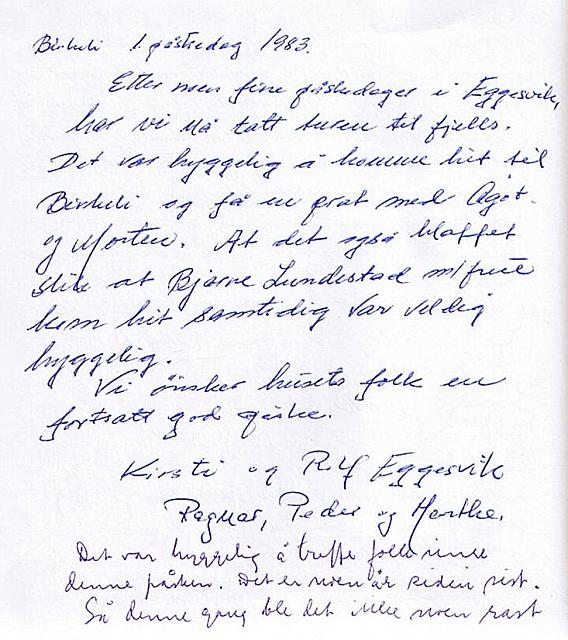 Birkeli 1. påskedag 1983.
Etter noen fine påskedager i Eggesvik,
har vi nå tatt turen til fjells.
Det var hyggelig å komme hit til
Birkeli og få en prat med Ågot
og Morten. At det også klaffet
slik at Bjarne Lundestad m/frue
kom hit samtidig var veldig
hyggelig.
Vi ønsker husets folk en
fortsatt god påske.
Kirsti og Rolf Eggesvik
Ragnar, Peder og Marthe.
Det var hyggelig å treffe folk inne
denne påsken. Det er noen år siden sist.
Så denne gang ble det ikke noen rast